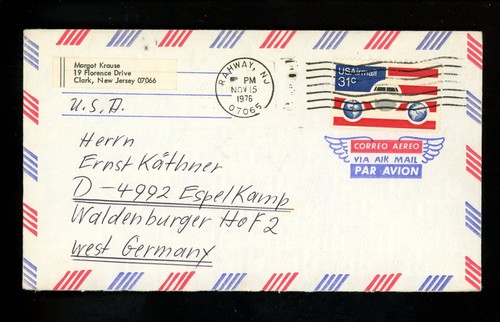 Margot Krause
19 Florence Drive
Clark, New Jersey 07066
U.S.A.
RAHWAY, NJ
PM
NOV 15
1976
07065
USAirmail
31c
CORREO AEREO
VIA AIR MAIL
PAR AVION
Herrn
Ernst Käthner
D-4992 Espelkamp
Waldenburger Hof 2
West Germany